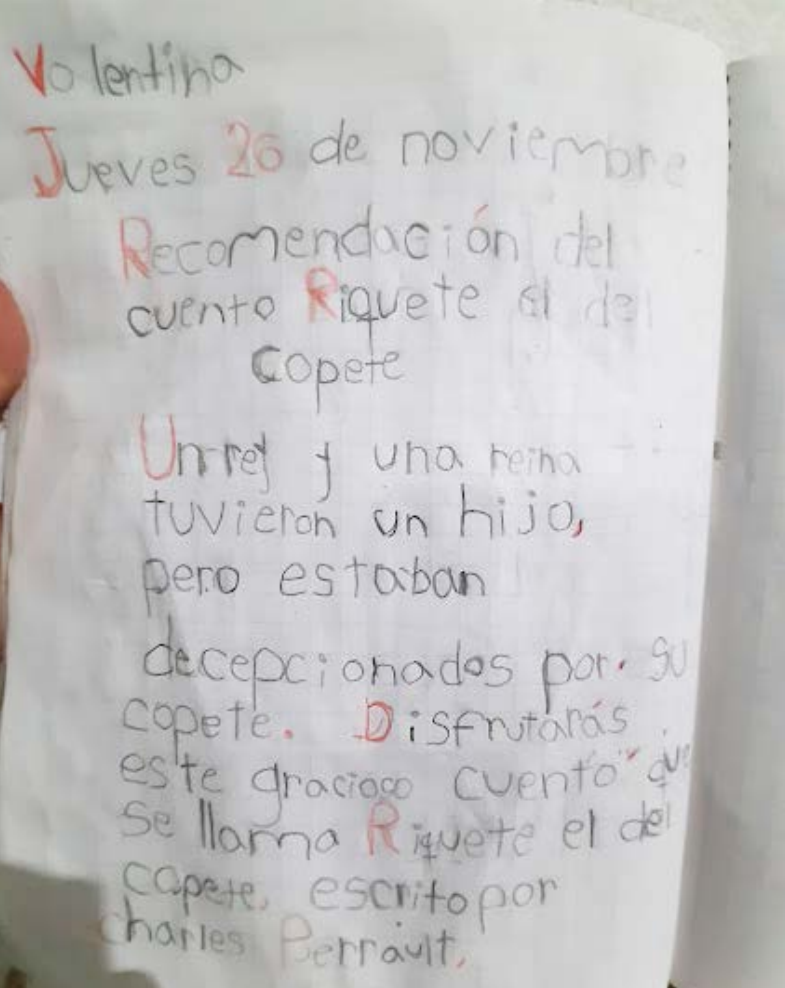 Valentina
Jueves 26 de noviembre
Recomendación del
cuento Riquete el del
copete
Un rey y una reina
tuvieron un hijo,
pero estaban
decepcionados por su
copete. Disfrutarás
este gracioso cuento que
se llama Riquete el del
copete, escrito por
Charles Perrault.